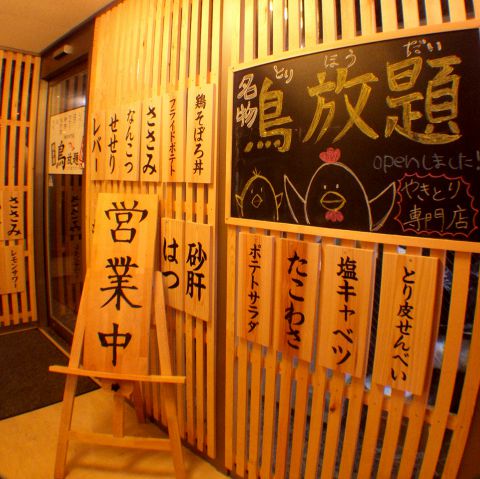 名物
とり ほう だい
鳥放題
openしました!
やきとり
専門店
鶏そぼろ丼
フライドポテト
ささみ
なんこつ
せせり
レバー
営業中
砂肝
はつ
とり皮せんべい
塩キャベツ
たこわさ
ポテトサラダ
鳥放題
ささみ
レモンサワー